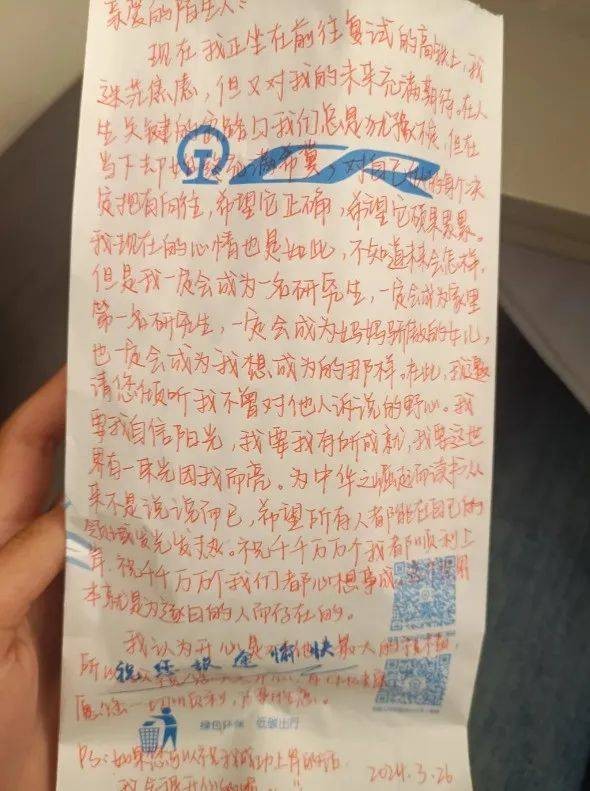 亲爱的陌生人：
现在我正坐在前往复试的高铁上，我
迷茫焦虑，但又对我的未来充满期待。在人
生关键的分路口我们总是犹豫不决，但在
当下却始终充满希冀，对自己的每个决
定抱有向往，希望它正确，希望它硕果累累。
我现在的心情也是如此，不知道未来会怎样，
但是我一定会成为一名研究生，一定会成为家里
第一名研究生，一定会成为妈妈骄傲的女儿，
也一定会成为我想成为的那样。在此，我
请您倾听我不曾对他人诉说的野心。我
要我自信阳光，我要我有所成就，我要这世
界有一束光因我而亮。为中华之崛起而读书从
来不是说说而已，希望所有人都能在自己的
领域发光发热。祝千千万万个我都顺利上
岸，祝千千万万个我们都心想事成。
本就是为逐日的人而存在的。
我认为开心是对 最大的
所以
祝您旅途愉快
愿您一切顺利，
绿色环保 低碳出行
PS：如果您 祝我成功上岸的话，
2024.3.26